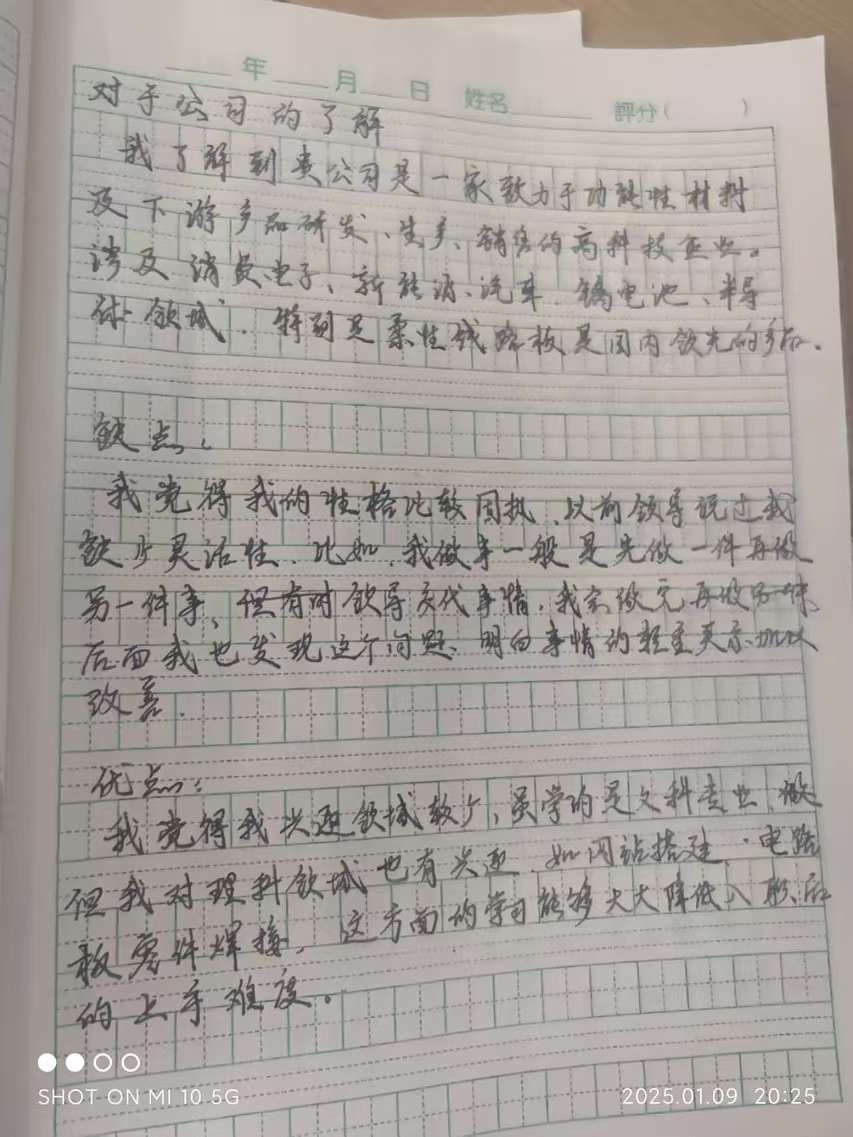 年 月 日 姓名 評分( )
对于公司的了解
我了解到贵公司是一家致力于功能性材料
及下游产品研发、生产、销售的高科技企业。
涉及消费电子、新能源、汽车、锂电池、半导
体领域,特别是柔性线路板是国内领先的产品.
缺点:
我觉得我的性格比较固执、以前领导说过我
缺少灵活性、比如,我做事一般是先做一件再做
另一件事、但有时领导交代事情,我会做完再做另一件、
后面我也发现这个问题、明白事情的轻重 加以
改善.
优点:
我觉得我兴趣领域较广、虽学的是文科专业
但我对理科领域也有兴趣、如网站搭建、电路
板零件焊接,这方面的学习能够大大降低入职后
的上手难度。
SHOT ON MI 10 5G
2025.01.09 20:25